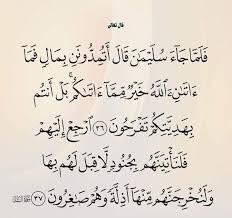 قال تعالى
فَلَمَّا جَآءَ سُلَيْمَٰنَ قَالَ أَتُمِدُّونَنِ بِمَالٍ فَمَآ
ءَاتَىٰنِۦَ ٱللَّهُ خَيْرٌ مِّمَّآ ءَاتَىٰكُم ۚ بَلْ أَنتُم
بِهَدِيَّتِكُمْ تَفْرَحُونَ ٣٦ ٱرْجِعْ إِلَيْهِمْ
فَلَنَأْتِيَنَّهُم بِجُنُودٍ لَّا قِبَلَ لَهُم بِهَا
وَلَنُخْرِجَنَّهُم مِّنْهَآ أَذِلَّةً وَهُمْ صَٰغِرُونَ ٣٧